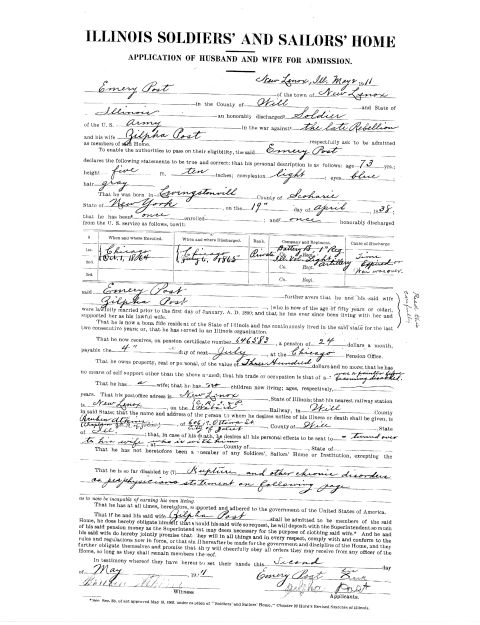 ILLINOIS SOLDIERS' AND SAILORS' HOME
APPLICATION OF HUSBAND AND WIFE FOR ADMISSION.
New Lenox, Ill. May 2 1911
Emery Post of the town of New Lenox
in the County of Will and State of
Illinois an honorably discharged Soldier
of the U. S. Army in the war against the late Rebellion
and his wife Zilpha Post respectfully ask to be admitted
as members of said Home.
To enable the authorities to pass on their eligibility, the said Emery Post
declares the following statements to be true and correct: that his personal description is as follows: age 73 yrs.;
height five ft. ten inches; complexion light; eyes blue
hair gray
That he was born in Livingstonvill County of Scoharie
State of New York, on the 19" day of April 1838;
that he has been once enrolled and once honorably discharged
from the U. S. service as follows, towit:
When and where Enrolled. When and where Discharged. Rank. Company and Regiment. Cause of Discharge
1st. Chicago Chicago Private Battery B, 1st Reg Time
Oct. 1, 1864 July 6, 1865 Ill. Vol. Light Artillery Expired or
2nd. Co. Regt. War was over
3rd. Co. Regt.
said Emery Post further avers that he and his said wife
Zilpha Post (who is now of the age of fifty years or older),
were lawfully married prior to the first day of January, A. D. 1890; and that he has ever since been living with her and
supported her as his lawful wife.
That he is now a bona fide resident of the State of Illinois and has continuously lived in the said state for the last
two consecutive years or, that he has served in an Illinois organization.
That he now receives, on pension certificate number 646583 a pension of 24 dollars a month,
payable the 4" day of next July, at the Chicago Pension Office.
That he owns property, real or personal, of the value of Three Hundred dollars and no more; that he has
no means of self support other than the above named; that his trade or occupation is that of a
That he has a wife; that he has no children now living; ages, respectively,
years. That his postoffice adress is New Lenox, State of Illinois; that his nearest railway station
is New Lenox on the Railway, in Will County
in said State; that the name and address of the person to whom he desires notice of his illness or death shall be given, is
of County of Will
State of Ill; that, in case of his death, he desires all his personal effects to be sent to turned over
to his wife who is with him County of State of
That he has not heretofore been a member of any Soldiers', Sailors' Home or Institution, excepting the
That he is so far disabled by (1) Rupture and other chronic disorders
as per physicians statement on following page
as to now be incapable of earning his own living.
That he has at all times, heretofore, supported and adhered to the government of the United States of America.
That if he and his said wife Zilpha Post shall be admitted to be members of the said
Home, he does hereby obligate himself that should his said wife so request, he will deposit with the Superintendent so much
of his said pension money as the Superintendent may deem necessary for the purpose of clothing said wife.* And he and
his said wife do hereby jointly promise that they will in all things and in every respect, comply with and conform to the
rules and regulations now in force, or that may hereafter be made for the government and discipline of the Home, and they
further obligate themselves and promise that they will cheerfully obey all orders they may receive from any officer of the
Home, so long as they shall remain members thereof.
In testimony whereof they have hereto set their hands this Second day
of May 1911
Emery Post
Zilpha Post
Witness Applicants.